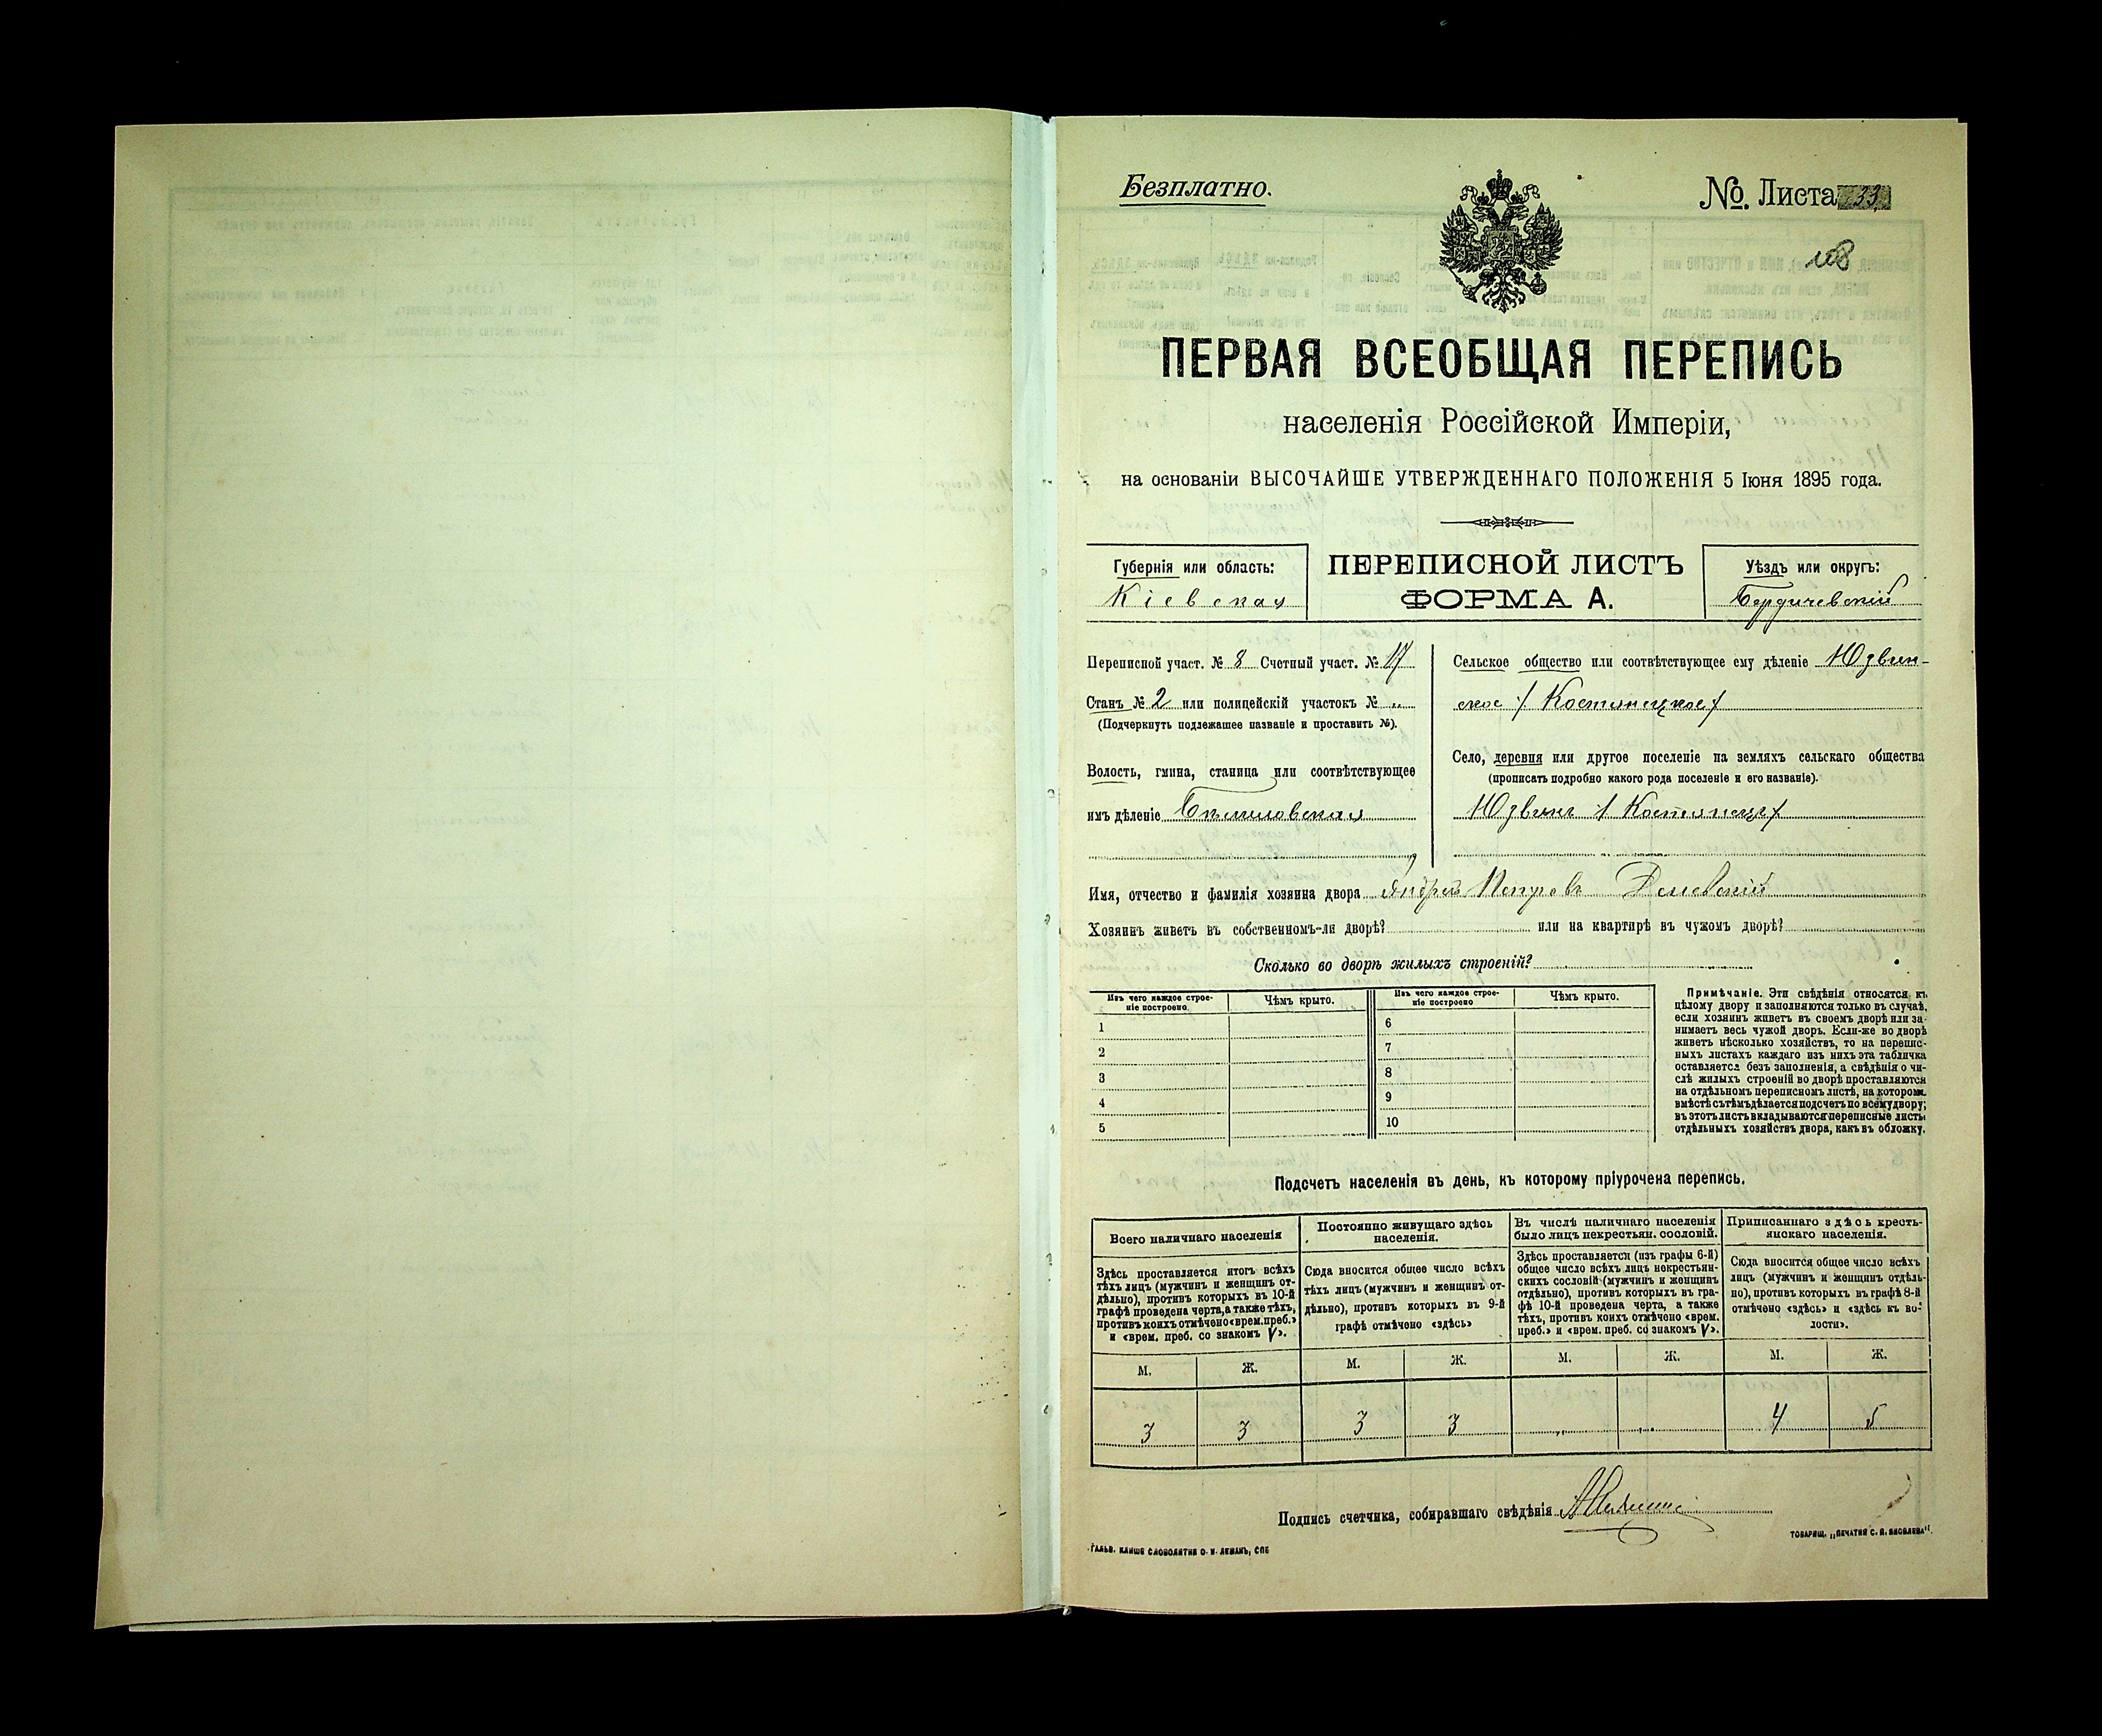 Безплатно.
№. Листа 33
108
ПЕРВАЯ ВСЕОБЩАЯ ПЕРЕПИСЬ
населенія Россійской Имперіи,
на основаніи ВЫСОЧАЙШЕ УТВЕРЖДЕННАГО ПОЛОЖЕНІЯ 5 Іюня 1895 года.
Губернія или область:
Кіевская
ПЕРЕПИСНОЙ ЛИСТЪ
ФОРМА А.
Уѣздъ или округъ:
Бердичевскій
Переписной участ. № 8 Счетный участ. № 17
Станъ № 2 или полицейскій участокъ № „
(Подчеркнуть подлежащее названіе и проставить №).
Волость, гмина, станица или соотвѣтствующее
имъ дѣленіе Бѣлиловская
Сельское общество или соотвѣтствующее ему дѣленіе Юзвин-
ское / Костянецкое /
Село, деревня или другое поселеніе на земляхъ сельскаго общества
(прописать подробно какого рода поселеніе и его названіе).
Юзвинъ / Костянецъ /
Имя, отчество и фамилія хозяина двора Андрей Петровъ
Хозяинъ живетъ въ собственномъ-ли дворѣ? или на квартирѣ въ чужомъ дворѣ?
Сколько во дворѣ жилыхъ строеній?
Изъ чего каждое строе-
ніе построено
Чѣмъ крыто.
1
2
3
4
5
Изъ чего каждое строе-
ніе построено
Чѣмъ крыто.
6
7
8
9
10
Примѣчаніе. Эти свѣдѣнія относятся къ
цѣлому двору и заполняются только въ случаѣ,
если хозяинъ живетъ въ своемъ дворѣ или за-
нимаетъ весь чужой дворъ. Если-же во дворѣ
живетъ нѣсколько хозяйствъ, то на перепис-
ныхъ листахъ каждаго изъ нихъ эта табличка
оставляется безъ заполненія, а свѣдѣнія о чи-
слѣ жилыхъ строеній во дворѣ проставляются
на отдѣльномъ переписномъ листѣ, на которомъ
вмѣстѣ съ тѣмъ дѣлается подсчетъ по всему двору;
въ этотъ листъ вкладываются переписные листы
отдѣльныхъ хозяйствъ двора, какъ въ обложку.
Подсчетъ населенія въ день, къ которому пріурочена перепись.
Всего наличнаго населенія
Здѣсь проставляется итогъ всѣхъ
тѣхъ лицъ (мужчинъ и женщинъ от-
дѣльно), противъ которыхъ въ 10-й
графѣ проведена черта, а также тѣхъ,
противъ коихъ отмѣчено «врем. преб.»
и «врем. преб. со знакомъ V».
М. Ж.
3 3
Постоянно живущаго здѣсь
населенія.
Сюда вносится общее число всѣхъ
тѣхъ лицъ (мужчинъ и женщинъ от-
дѣльно), противъ которыхъ въ 9-й
графѣ отмѣчено «здѣсь»
М. Ж.
3 3
Въ числѣ наличнаго населенія
было лицъ некрестьян. сословій.
Здѣсь проставляется (изъ графы 6-й)
общее число всѣхъ лицъ некрестьян-
скихъ сословій (мужчинъ и женщинъ
отдѣльно), противъ которыхъ въ гра-
фѣ 10-й проведена черта, а также
тѣхъ, противъ коихъ отмѣчено «врем.
преб.» и «врем. преб. со знакомъ V».
М. Ж.
„ „
Приписаннаго здѣсь кресть-
янскаго населенія.
Сюда вносится общее число всѣхъ
лицъ (мужчинъ и женщинъ отдѣль-
но), противъ которыхъ въ графѣ 8-й
отмѣчено «здѣсь» и «здѣсь къ во-
лости».
М. Ж.
4 5
Подпись счетчика, собиравшаго свѣдѣнія
ГАЛЬВ. КЛИШЕ СЛОВОЛИТНИ О. И. ЛЕМАНЪ, СПБ
ТОВАРИЩ. „ПЕЧАТНЯ С. П. ЯКОВЛЕВА".